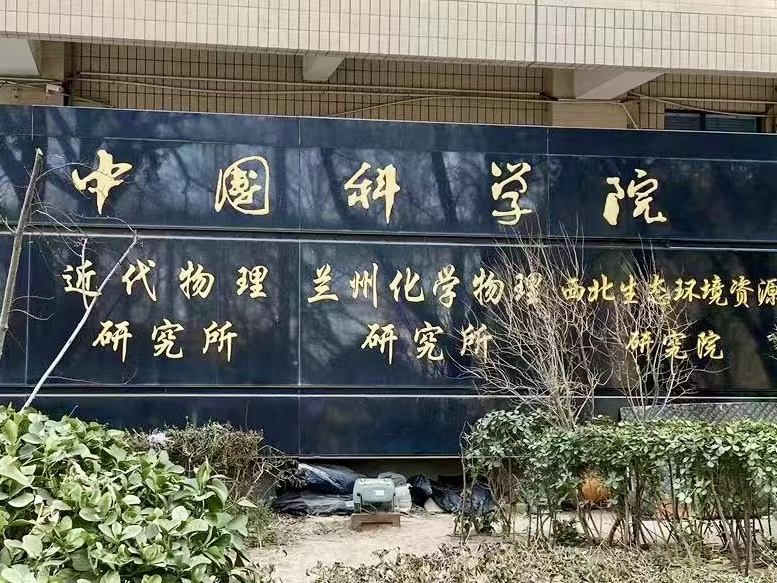 中国科学院
近代物理 兰州化学物理 西北生态环境资源
研究所 研究所 研究院